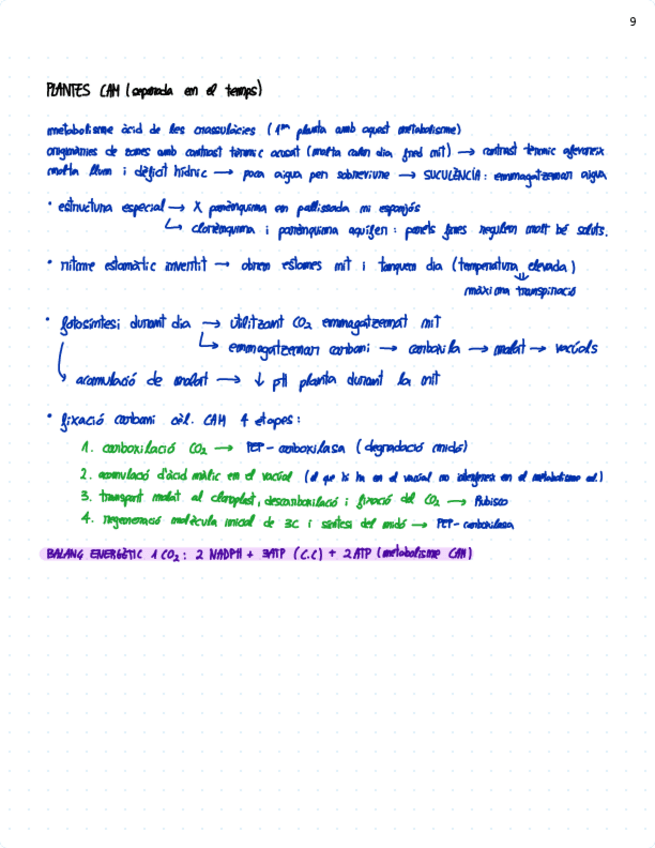 9
PLANTES CAM (separada en el temps)
metabolisme àcid de les crassulàcies (1ra planta amb aquest metabolisme)
originàries de zones amb contrast tèrmic acusat (molta calor dia, fred nit) → contrast tèrmic afavoreix
molta llum i dèficit hídric → poca aigua per sobreviure → SUCULÈNCIA: emmagatzemar aigua
• estructura especial → X parènquima en palissada ni esponjós
↳ clorènquima i parènquima aquífer: parets fines regulen molt bé soluts.
• ritme estomàtic invertit → obren estomes nit i tanquen dia (temperatura elevada)
⇓
màxima transpiració
• fotosíntesi durant dia → utilitzant CO2 emmagatzemat nit
↳ emmagatzemar carboni → carboxila → malat → vacúols
↳ acumulació de malat → ↓ pH planta durant la nit
• fixació carboni cèl. CAM 4 etapes:
1. carboxilació CO2 → PEP-carboxilasa (degradació midó)
2. acumulació d'àcid màlic en el vacúol (el que hi ha en el vacúol no interfereix en el metabolisme cel.)
3. transport malat al cloroplast, descarboxilació i fixació del CO2 → Rubisco
4. regeneració molècula inicial de 3C i síntesi del midó → PEP-carboxilasa
BALANÇ ENERGÈTIC 1 CO2: 2 NADPH + 3ATP (C.C) + 2ATP (metabolisme CAM)